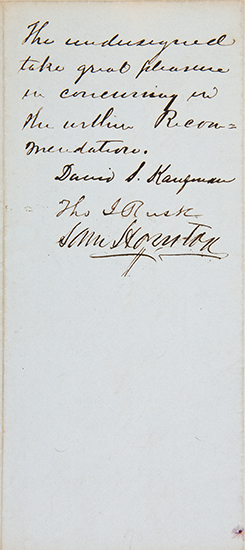 The undersigned
take great pleasure
in concurring in
the within Recom-
mendation.
David S. Kaufman
Tho J Rusk
Sam Houston